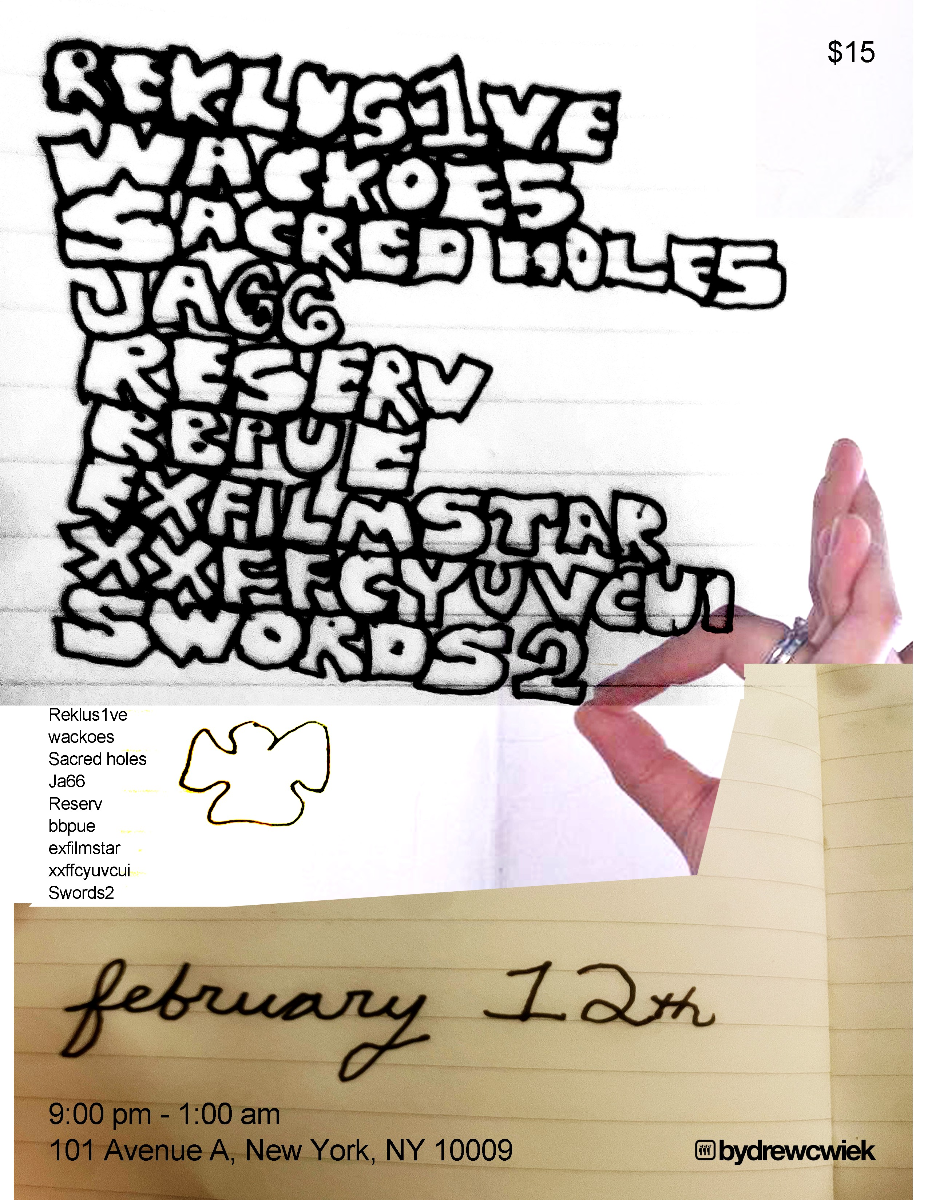 $15
REKLUS1VE
WACKOES
SACRED HOLES
JA66
RESERV
RBPUE
EXFILMSTAR
XXFFCYUVCUI
SWORDS2
Reklus1ve
wackoes
Sacred holes
Ja66
Reserv
bbpue
exfilmstar
xxffcyuvcui
Swords2
february 12th
9:00 pm - 1:00 am
101 Avenue A, New York, NY 10009
bydrewcwiek